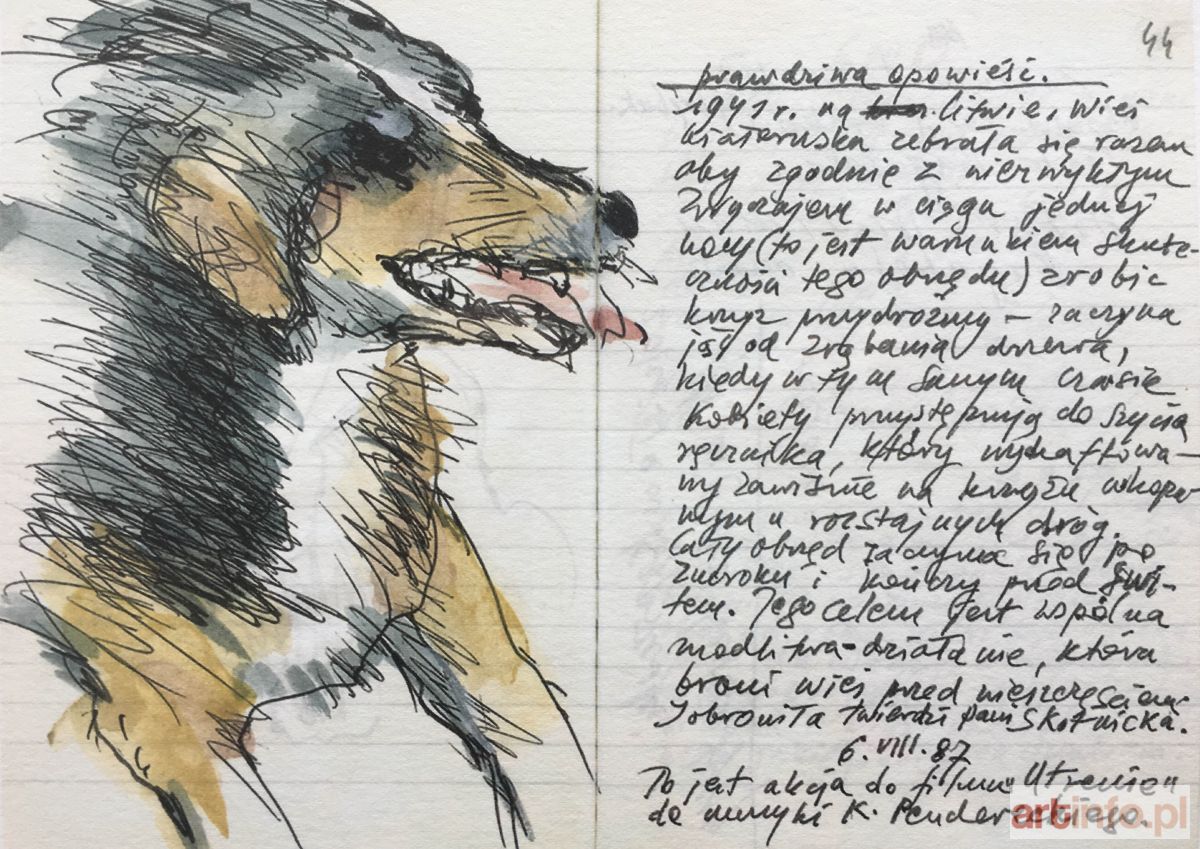 44
prawdziwa opowieść.
1941 r. na Litwie, wieś
białoruska zebrała się razem
aby zgodnie z niezwykłym
zwyczajem w ciągu jednej
nocy (to jest warunkiem skute-
czności tego obrzędu) zrobić
krzyż przydrożny – zaczyna
jąc od zrąbania drzewa,
kiedy w tym samym czasie
kobiety przystępują do szycia
ręcznika, który wyhaftowa-
ny zawiśnie na krzyżu wkopa
nym u rozstajnych dróg.
Cały obrzęd zaczyna się po
zmroku i kończy przed świ-
tem. Jego celem jest wspólna
modlitwa-działanie, która
broni wieś przed nieszczęściem.
I obroniła twierdzi pani Skotnicka.
6.VIII.87
To jest akcja do filmu "Utrenja"
do muzyki K. Pendereckiego.
artinfo.pl